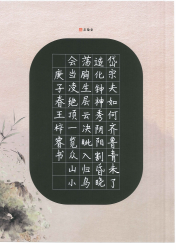 岱宗夫如何齐鲁青未了
造化钟神秀阴阳割昏晓
荡胸生层云决眦入归鸟
会当凌绝顶一览众山小
庚子春王梓睿书